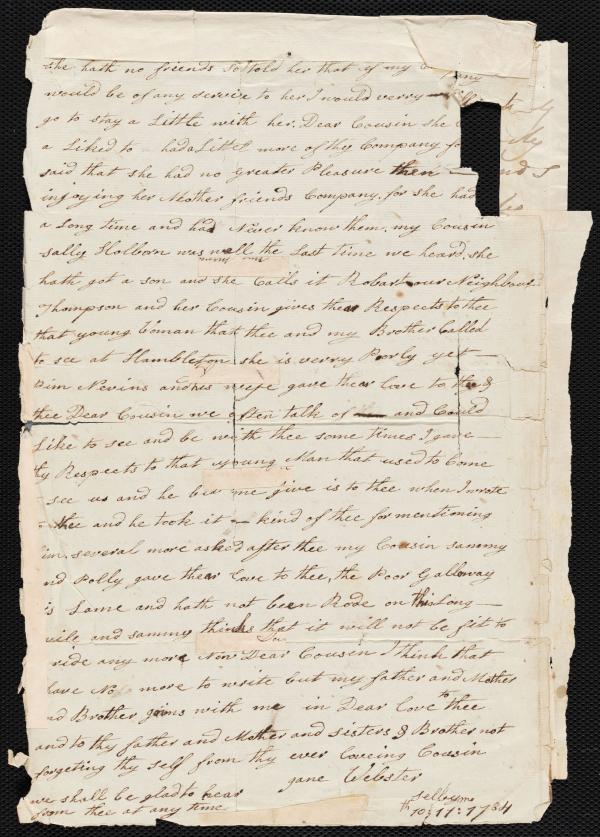 she hath no friends so I told her that if my Company
would be of any servise to her I would verry
go to stay a Little with her. Dear Cousin she
a Liked to had a Littel more of thy Company for
said that she had no greater Pleasure then
injoying her Mother friends Company, for she had
a Long time and had Never know them, my Cousin
sally Holborn was well the Last time we heard, she
hath got a son and she Calls it Robart our Neighbour
Thompson and her Cousin gives thear Respects to thee
that young Coman that thee and my Brother Called
to see at Hambleton she is verry Poorly yet
Pim Nevins and his wife gave thear Love to thee &
thee Dear Cousin we often talk of and Could
Like to see and be with thee some times I gave
thy Respects to that young Man that used to Come
see us and he bid me give is to thee when I wrote
thee and he took it kind of thee for mentioning
him, several more asked after thee my Cousin sammy
and Polly gave thear Love to thee, the Poor Galloway
is Lame and hath not been Rode on this Long
wile and sammy thinks that it will not be fit to
ride any more Now Dear Cousin I think that
have No more to write but my father and Mother
and Brother joins with me in Dear Love to thee
and to thy father and Mother and sisters & Brother not
forgeting thy self from thy ever Loveing Cousin
jane Webster
we shall be glad to hear
from thee at any time
selby mo
11: 1784
My